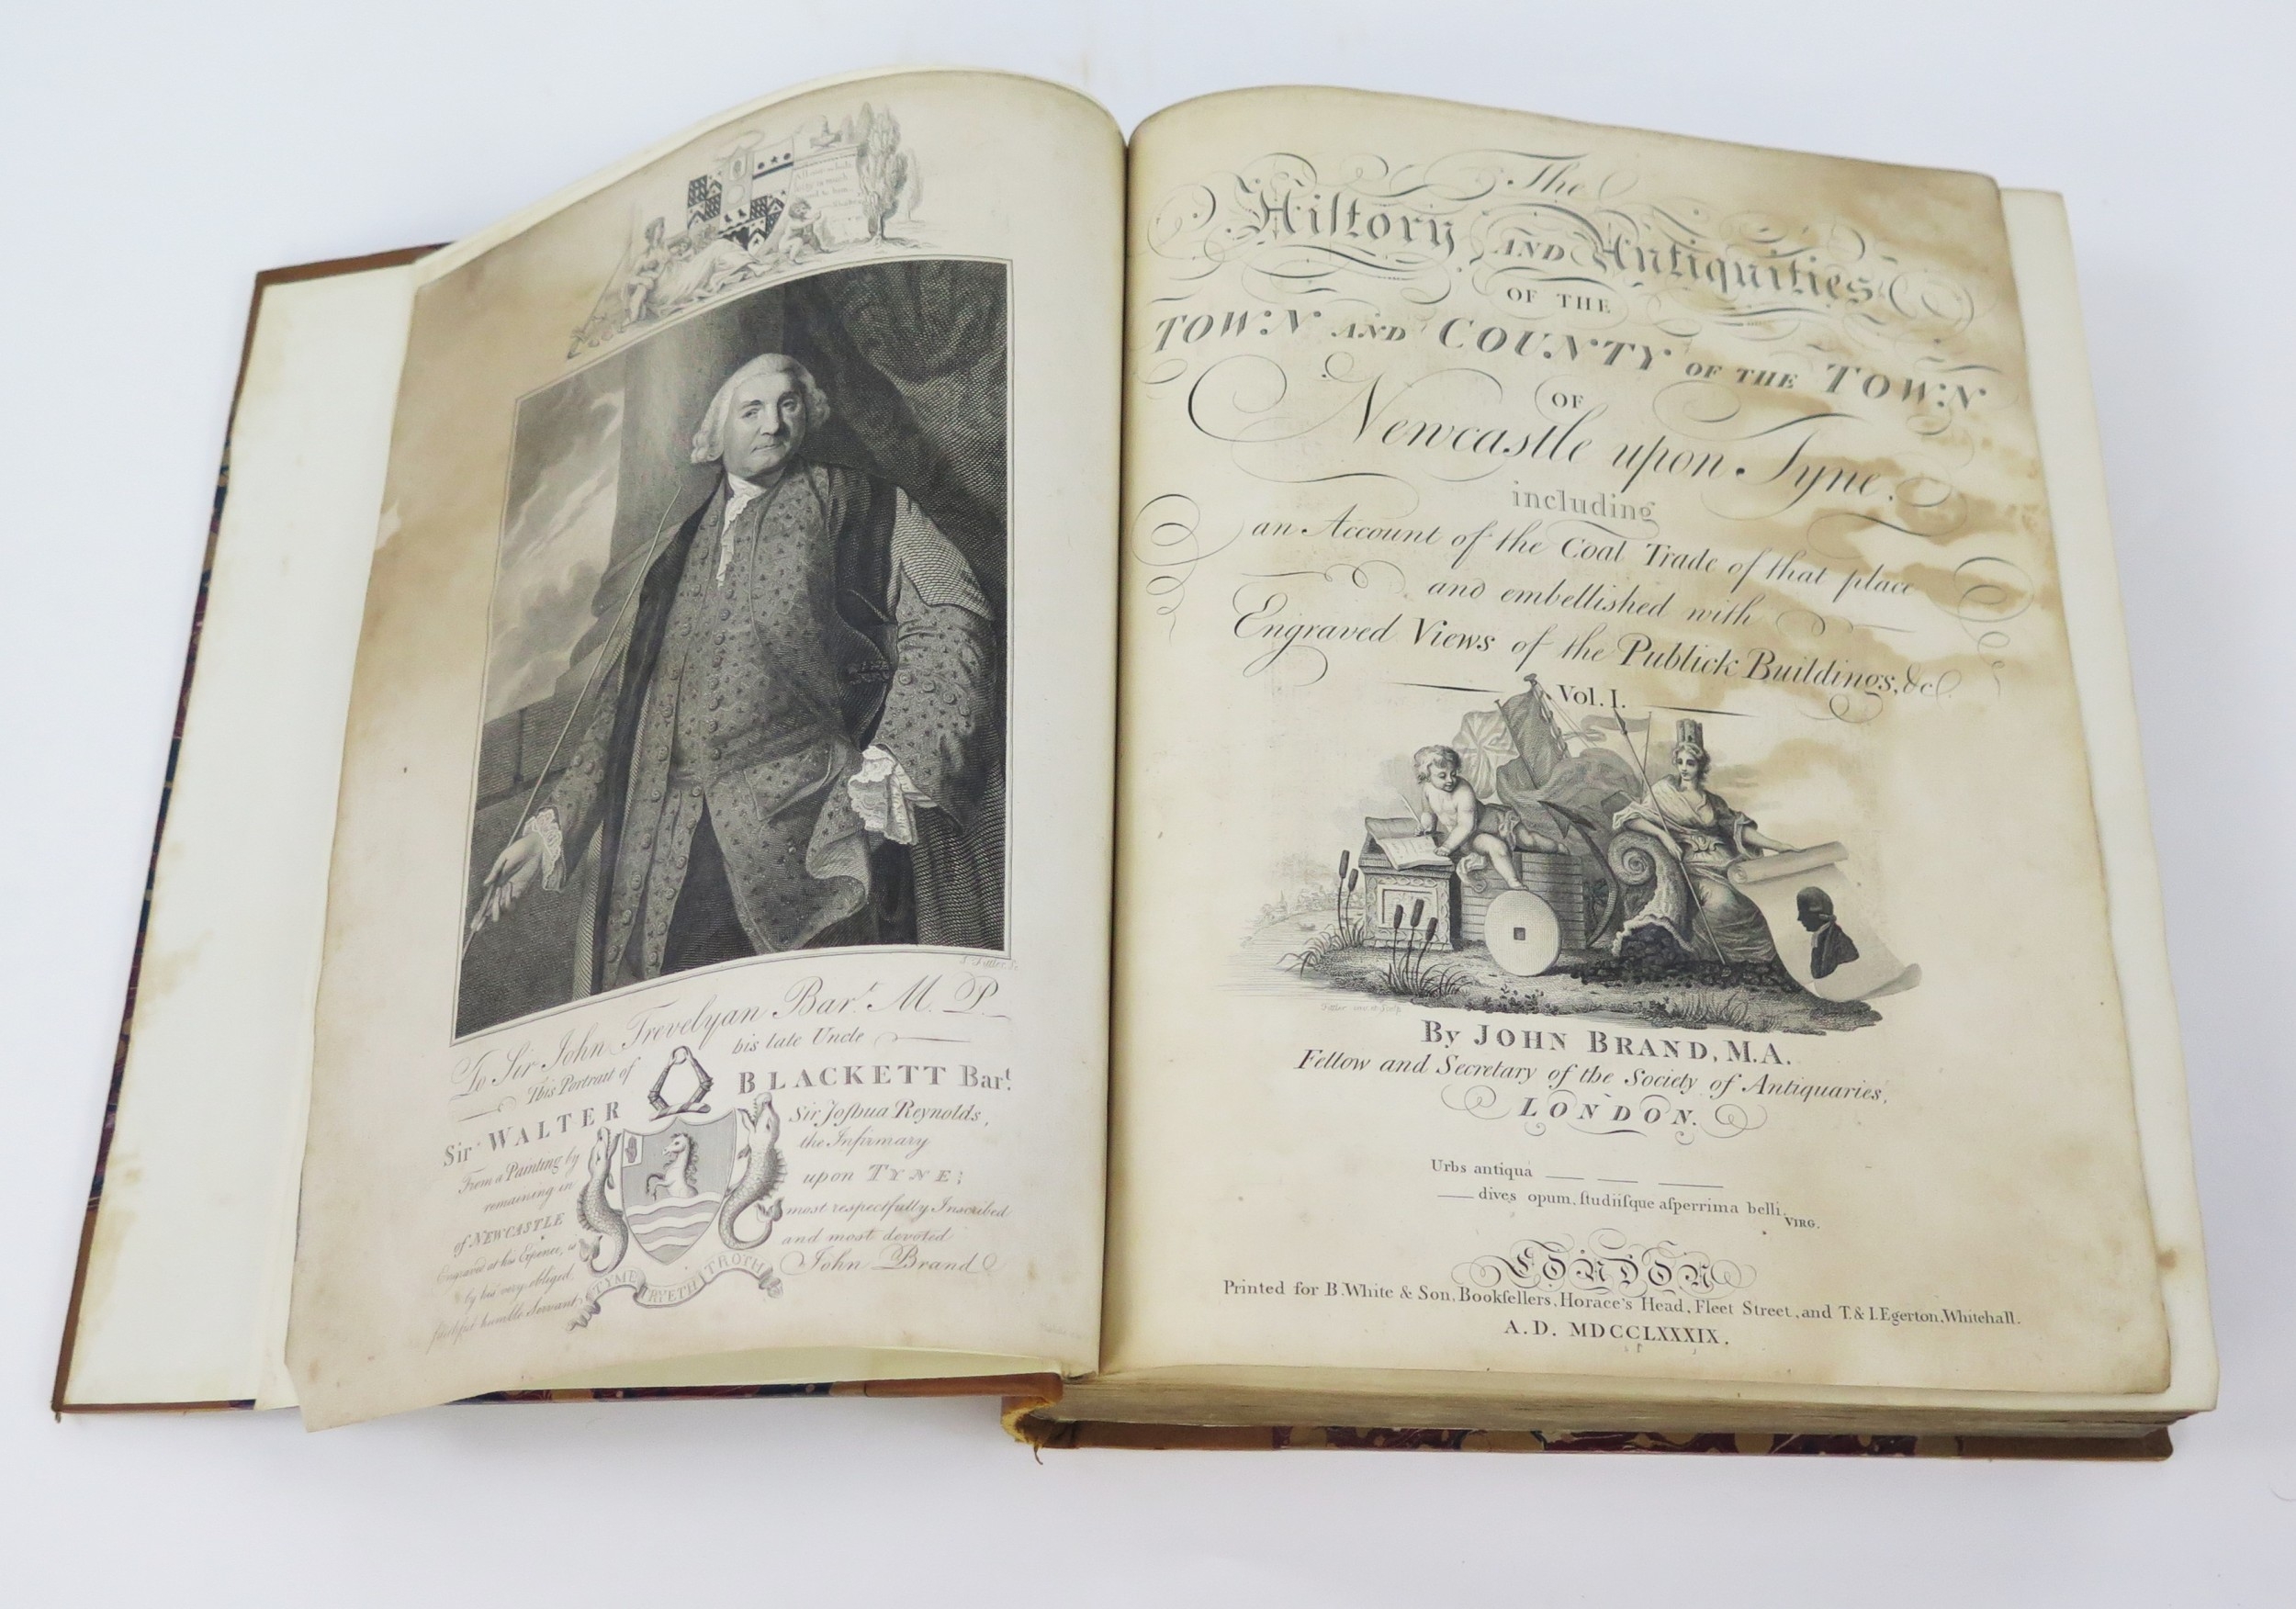 J. Fittler Sc.
To Sir John Trevelyan Bar.t M.P.
This Portrait of his late Uncle
Sir WALTER BLACKETT Bar.t
From a Painting by Sir Joſhua Reynolds,
remaining in the Infirmary
of NEWCASTLE upon TYNE;
Engraved at his Expence, is most respectfully Inscribed
by his very obliged, and most devoted
faithful humble Servant John Brand
TYME TRYETH TROTH
The
Hiſtory AND Antiquities
OF THE
TOWN AND COUNTY OF THE TOWN
OF
Newcastle upon Tyne,
including
an Account of the Coal Trade of that place
and embellished with
Engraved Views of the Publick Buildings, &c.
Vol. I.
Fittler inv. et Sculp.
By JOHN BRAND, M.A.
Fellow and Secretary of the Society of Antiquaries,
LONDON.
Urbs antiqua
dives opum, ſtudiiſque aſperrima belli.
VIRG.
LONDON
Printed for B. White & Son, Bookſellers, Horace's Head, Fleet Street, and T. & I. Egerton, Whitehall.
A.D. MDCCLXXXIX.